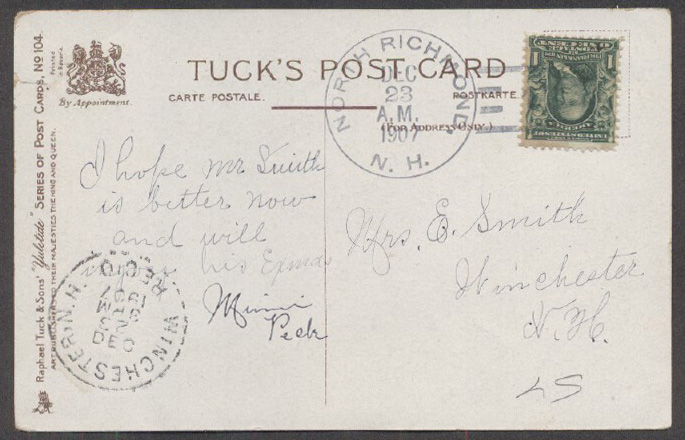 TUCK'S POST CARD
CARTE POSTALE.
POSTKARTE.
(FOR ADDRESS ONLY.)
By Appointment.
Printed in Bavaria.
Raphael Tuck & Sons' "Yuletide" SERIES OF POST CARDS, No 104.
ART PUBLISHERS TO THEIR MAJESTIES THE KING AND QUEEN.
NORTH RICHMOND,
DEC
23
A.M.
1907
N. H.
I hope Mr Smith
is better now
and will
his Exmas
Minni
Peck
Mrs. E. Smith
Winchester
N.H.
WINCHESTER, N.H.
DEC
REC'D